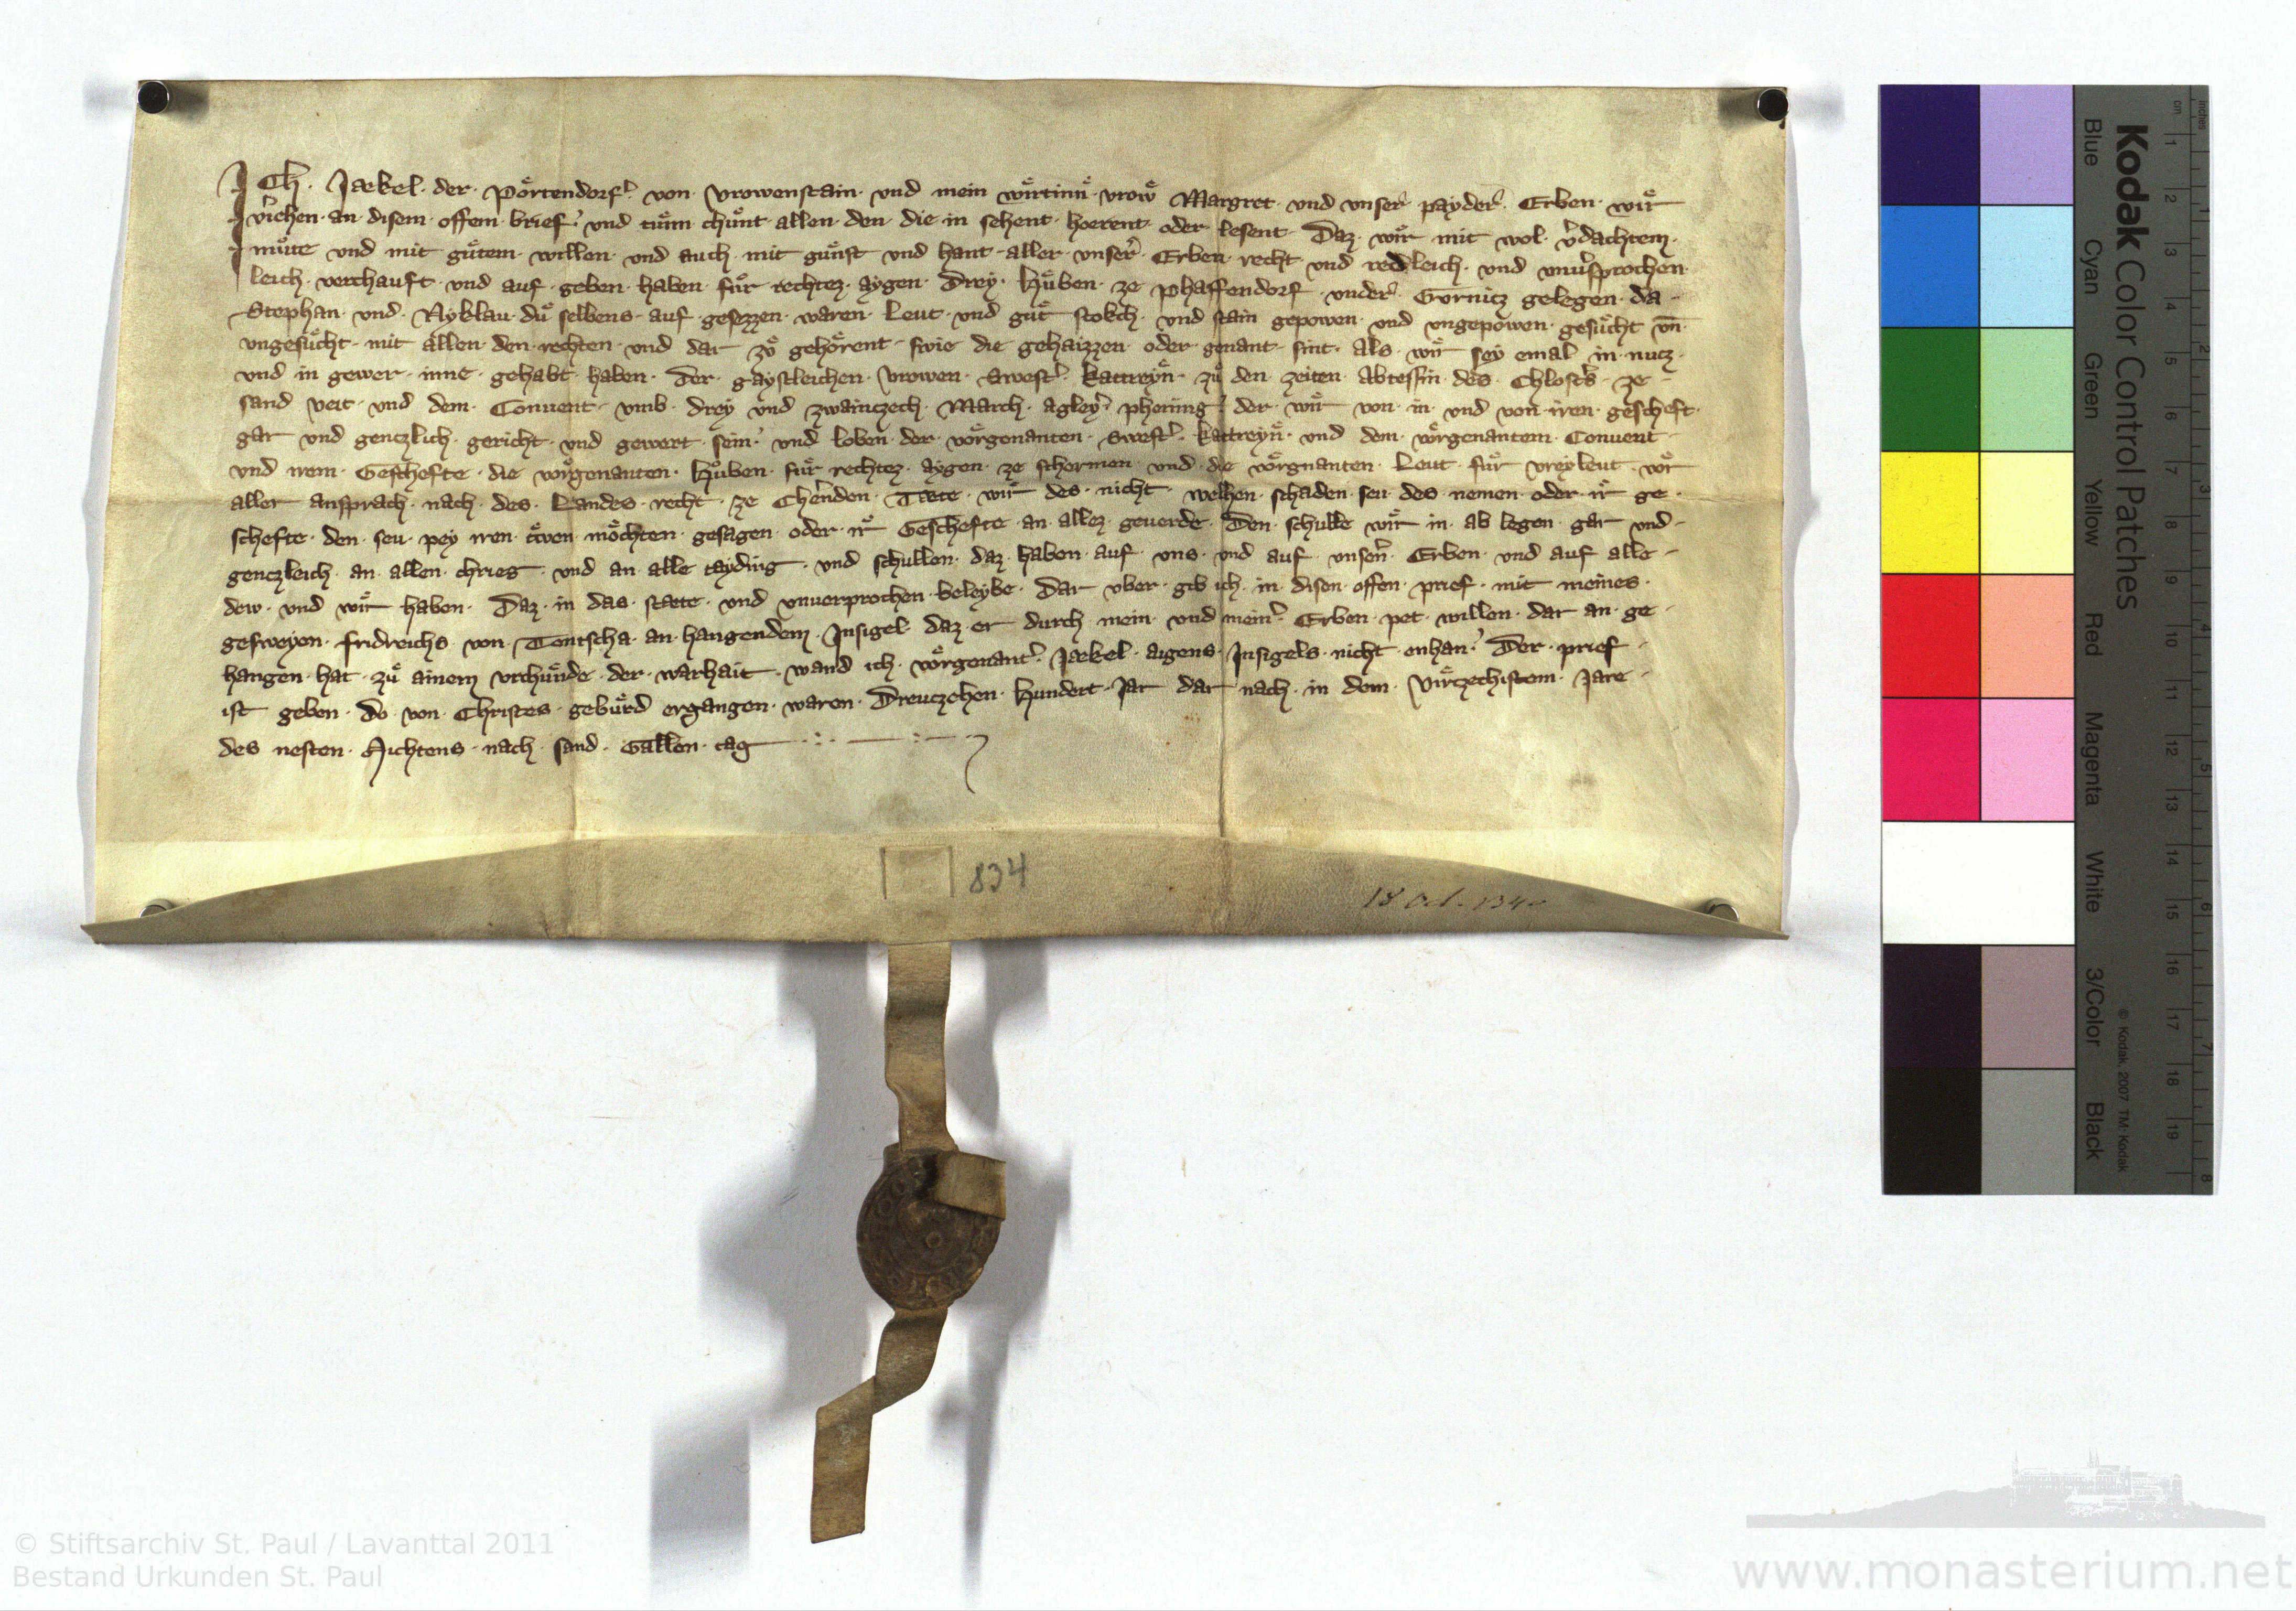 ICh · Jaekel · der · Pörtendorfer · von · Vrowenstain · und · mein wirtinn · vrow Margret · und unser payder · Erben · wir
veriehen · an · disem · offem · brief · und tuͤn chuͦnt · allen · den · die · in sehent · hoerent · oder lesent · Daz · wir mit wol · v̓dachtem ·
muͦte und mit guͦtem · willen · und auch · mit guͦnst und hant · aller unser · Erben · recht und redleich · und unv̓sprochen
leich · verchauft · und auf · geben · haben · fuͤr rechtez · aygen · Drey · Huͦben · ze Phaffendorf · under · Gornitz gelegen · da ·
Stephan · und · Nyklau · duͤ selbens · auf · gesezzen · waren · Leut · und guͦt stokch · und stain gepowen · und ungepowen · gesuͤcht vn̄
ungesuͤcht · mit allen · den rechten · und dar zuͦ gehoͤrent · swie die gehaizzen · oder genant · sint · als · wir sey emal in nutz ·
und in gewer · inne · gehabt haben · Der · gaystleichen · Vrowen · Swester · Kattreyn · zuͦ den zeiten Abtessin des · Chlosters · ze ·
sand Veit · und dem · Convent · umb · drey und zwainczech · March · Agleyer · phening · der wir von · in und von iren · gescheft ·
gar und genczlich · gericht · und gewert · sein · und loben der vorgenanten · Swester · Kattreyn · und dem vorgenantem Convent ·
und irem · Geschefte · die vorgenanten · Huͦben · fuͤr rechtez aygen ze schermen und · die vorgnanten · Leut · fuͤr vreyleut · vor
aller ansprach · nach · des · Landes · recht · ze Chernden · Taete · wir des · nicht · welhen · schaden · seu · des · nemen · oder ir ge ·
schefte · den · seu · pey iren · triwen · moͤchten · gesagen · oder · ir Geschefte · an allez · geuerde · Den · schulle wir in ab legen · gar und ·
genczleich · an · allen · chrieg · und an alle tayding · und schullen · daz · haben · auf · uns · und auf · unsern Erben · und auf alle ·
dew · und wir haben · Daz · in das · staete · und unuerprochen · beleybe · Dar uber · gib ich · in · disen · offen · prief · mit · meines ·
gesweyen · Fridreichs von · Tentscha · an · hangendem · Insigel · daz · er durch mein · und meiner · Erben · pet willen · dar an ge ·
hangen · hat · zuͦ ainem urchuͤnde · der · warhait · wand ich · vorgenanter Jaekel · aigens · Insigels · nicht · enhan · Der · prief ·
ist geben · do von · Christes · gebuͤrd ergangen · waren · Dreuczehen · Hundert · Jar dar nach · in dem · Virczechistem · Jare ·
des nesten · Aichtens · nach · sand · Gallen · tag
834
18 Oct. 1340
Kodak Color Control Patches
Blue Cyan Green Yellow Red Magenta White 3/Color Black
© Kodak, 2007 TM: Kodak
cm 1 2 3 4 5 6 7 8 9 10 11 12 13 14 15 16 17 18 19
inches 1 2 3 4 5 6 7 8
© Stiftsarchiv St. Paul / Lavanttal 2011
Bestand Urkunden St. Paul
www.monasterium.net